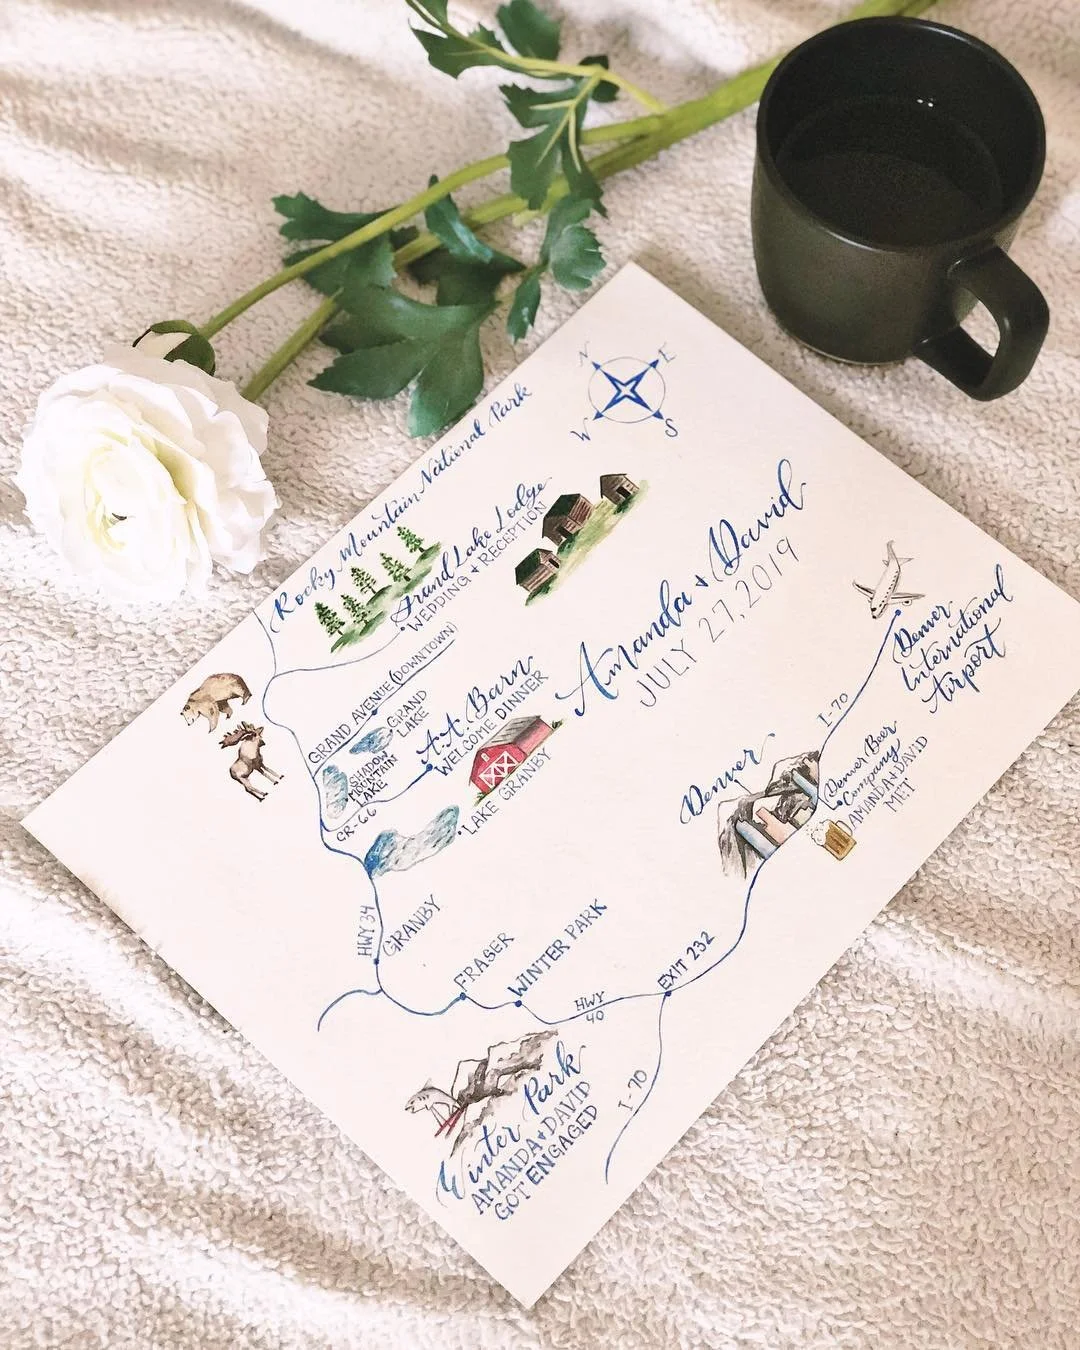 N
E
W
S
Rocky Mountain National Park
Grand Lake Lodge
WEDDING + RECEPTION
Amanda + David
JULY 27, 2019
GRAND AVENUE (DOWNTOWN)
GRAND
LAKE
SHADOW
MOUNTAIN
LAKE
A.A. Barn
WELCOME DINNER
CR-66
LAKE GRANBY
Denver
International
Airport
I-70
Denver
Denver Beer
Company
AMANDA + DAVID
MET
HWY 34
GRANBY
FRASER
WINTER PARK
HWY
40
EXIT 232
I-70
Winter Park
AMANDA + DAVID
GOT ENGAGED